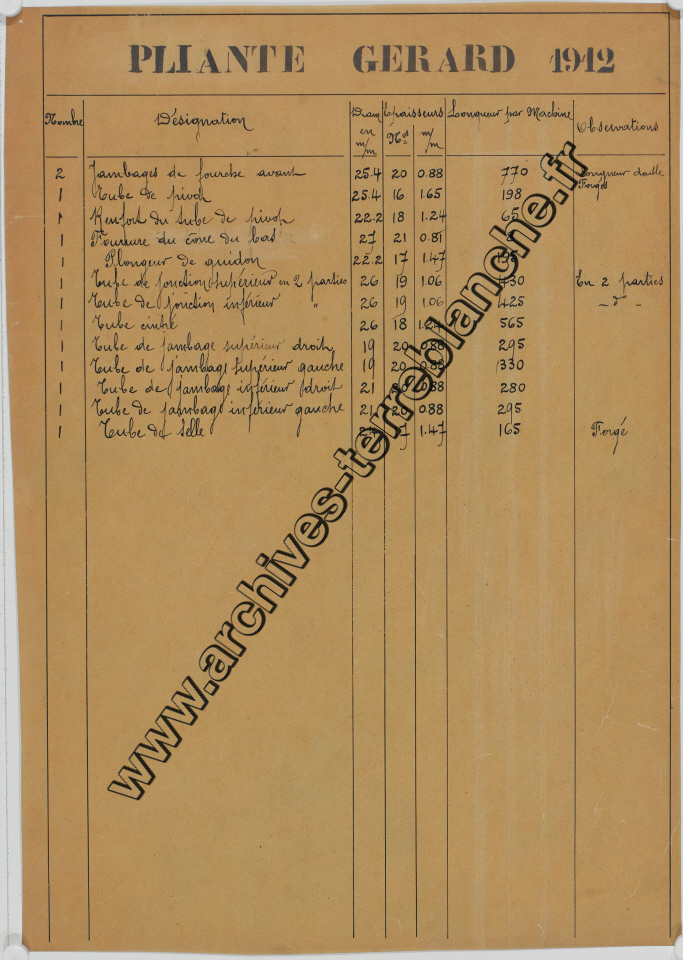 PLIANTE GERARD 1912
Nombre Désignation Diam en m/m Epaisseurs Nos m/m Longueur par Machine Observations
2 Jambages de fourche avant 25.4 20 0.88 770 Longueur d'aille
1 Tube de pivot 25.4 16 1.65 198 Forgés
1 Renfort du tube de pivot 22.2 18 1.24 65
1 Fourrure du cône du bas 27 21 0.81
1 Plongeur de guidon 22.2 17 1.47
1 Tube de jonction supérieur en 2 parties 26 19 1.06 430 En 2 parties
1 Tube de jonction inférieur " 26 19 1.06 425 - d° -
1 Tube cintré 26 18 1.24 565
1 Tube de jambage supérieur droit 19 20 0.88 295
1 Tube de jambage supérieur gauche 19 20 0.88 330
1 Tube de jambage inférieur droit 21 20 0.88 280
1 Tube de jambage inférieur gauche 21 20 0.88 295
1 Tube de selle 1.47 165 Forgé
www.archives-terreblanche.fr